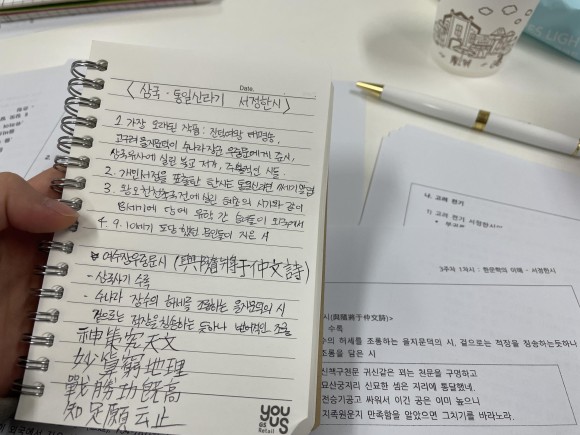 Date.
〈 삼국·통일신라기 서정한시 〉
1. 가장 오래된 작품: 진덕여왕 태평송,
고구려 을지문덕이 수나라 장군 우중문에게 준 시,
삼국유사에 실린 불교 저가, 주술적인 시 등.
2. 개인서정을 표출한 한시는 통일신라때 쓰이기 시작함
3. 왕오천축국전에 실린 혜초의 시가와 같이
8세기에 당에 유학 간 승려들이 외국에서
4. 9, 10세기 도당 했던 문인들이 지은 시
여수장우중문시 (與隋將于仲文詩)
- 삼국사기 수록
- 수나라 장수의 허세를 조롱하는 을지문덕의 시
겉으로는 적장을 칭송하는 듯하나 반어적인 조롱
神策究天文
妙算窮地理
戰勝功旣高
知足願云止
YOU
US
GS Retail
LIGH
나. 고려 전기
1) 고려 전기 서정한시
3주차 1차시 : 한문학의 이해 - 서정한시
시(與隋將于仲文詩)>
수록
수의 허세를 조롱하는 을지문덕의 시, 겉으로는 적장을 칭송하는듯하나
조롱을 담은 시
신책구천문 귀신같은 꾀는 천문을 구명하고
묘산궁지리 신묘한 셈은 지리에 통달했네.
전승기공고 싸워서 이긴 공은 이미 높으니
지족원운지 만족함을 알았으면 그치기를 바라노라.